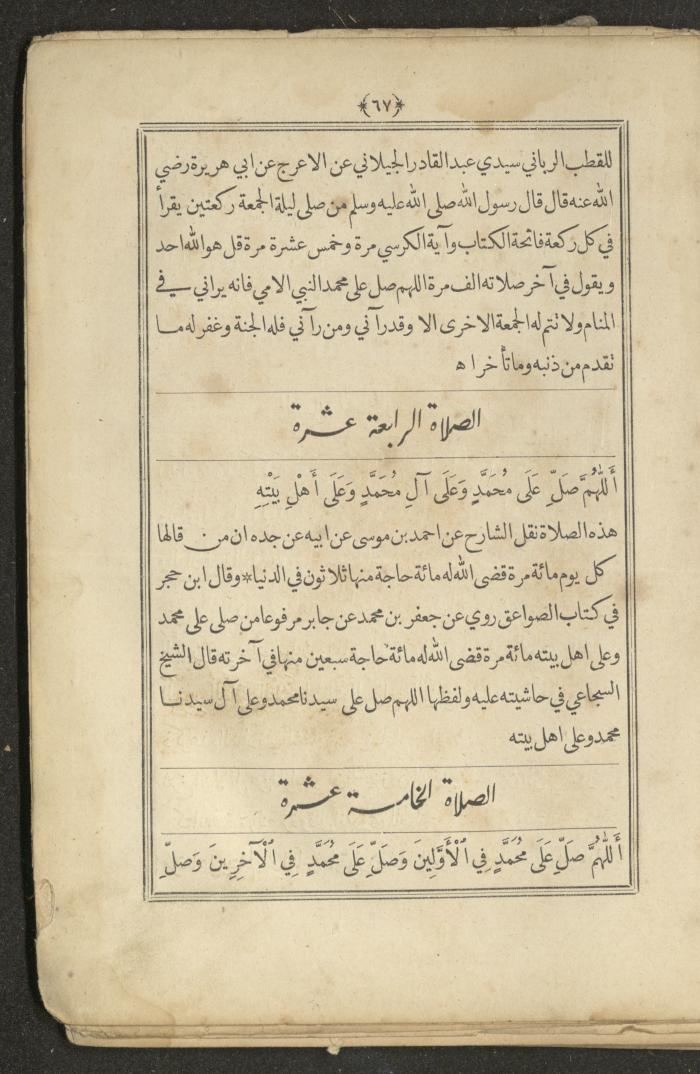 ﴿٦٧﴾
للقطب الرباني سيدي عبد القادر الجيلاني عن الاعرج عن ابي هريرة رضي
الله عنه قال قال رسول الله صلى الله عليه وسلم من صلى ليلة الجمعة ركعتين يقرأ
في كل ركعة فاتحة الكتاب وآية الكرسي مرة وخمس عشرة مرة قل هو الله احد
ويقول في آخر صلاته الف مرة اللهم صل على محمد النبي الامي فانه يراني في
المنام ولا تتم له الجمعة الاخرى الا وقد رآني ومن رآني فله الجنة وغفر له ما
تقدم من ذنبه وما تأخر اه
الصلاة الرابعة عشرة
أَللّٰهُمَّ صَلِّ عَلَى مُحَمَّدٍ وَعَلَى آلِ مُحَمَّدٍ وَعَلَى أَهْلِ بَيْتِهِ
هذه الصلاة نقل الشارح عن احمد بن موسى عن ابيه عن جده ان من قالها
كل يوم مائة مرة قضى الله له مائة حاجة منها ثلاثون في الدنيا * وقال ابن حجر
في كتاب الصواعق روي عن جعفر بن محمد عن جابر مرفوعا من صلى على محمد
وعلى اهل بيته مائة مرة قضى الله له مائة حاجة سبعين منها في آخرته قال الشيخ
السجاعي في حاشيته عليه ولفظها اللهم صل على سيدنا محمد وعلى آل سيدنا
محمد وعلى اهل بيته
الصلاة الخامسة عشرة
أَللّٰهُمَّ صَلِّ عَلَى مُحَمَّدٍ فِي ٱلْأَوَّلِينَ وَصَلِّ عَلَى مُحَمَّدٍ فِي ٱلْآخِرِينَ وَصَلِّ